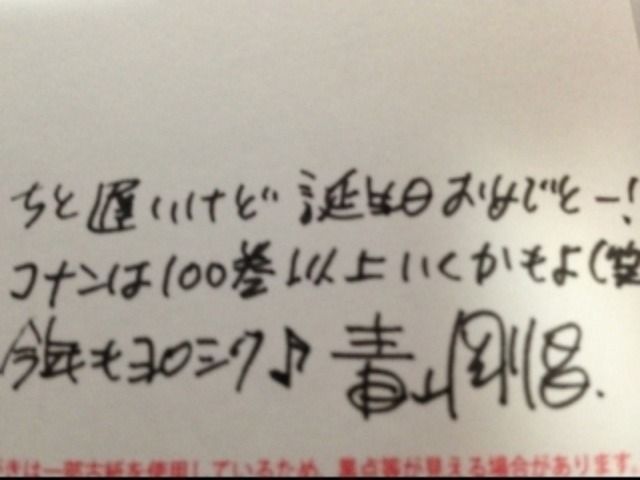 ちと遅いけど 誕生日おめでとー!
コナンは100巻以上いくかもよ(笑
今年もヨロシク♪ 青山剛昌.
がきは一部古紙を使用しているため、黒点等が見える場合があります。